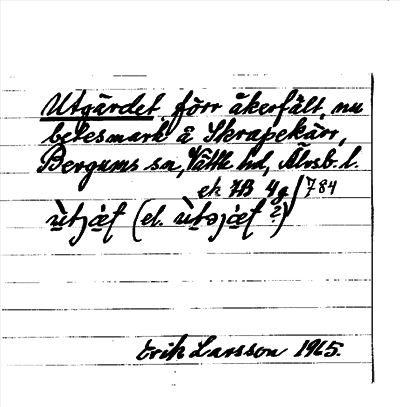 Utgärdet, förr åkerfält, nu
betesmark å Skrapekärr,
Bergums sn, Vättle hd, Älvsb. l.
ek 7B 4g/784
ùtjæ̀f (el. ùtəjæ̀f ?)
Erik Larsson 1965.